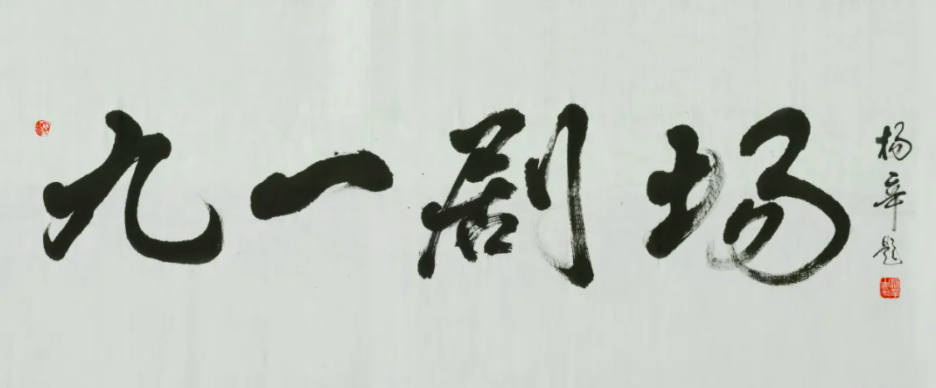 九一剧场
杨辛题